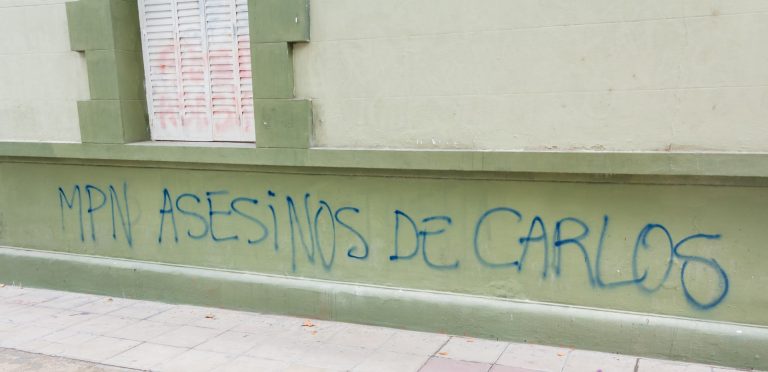 MPN ASESiNOS DE CARLOS